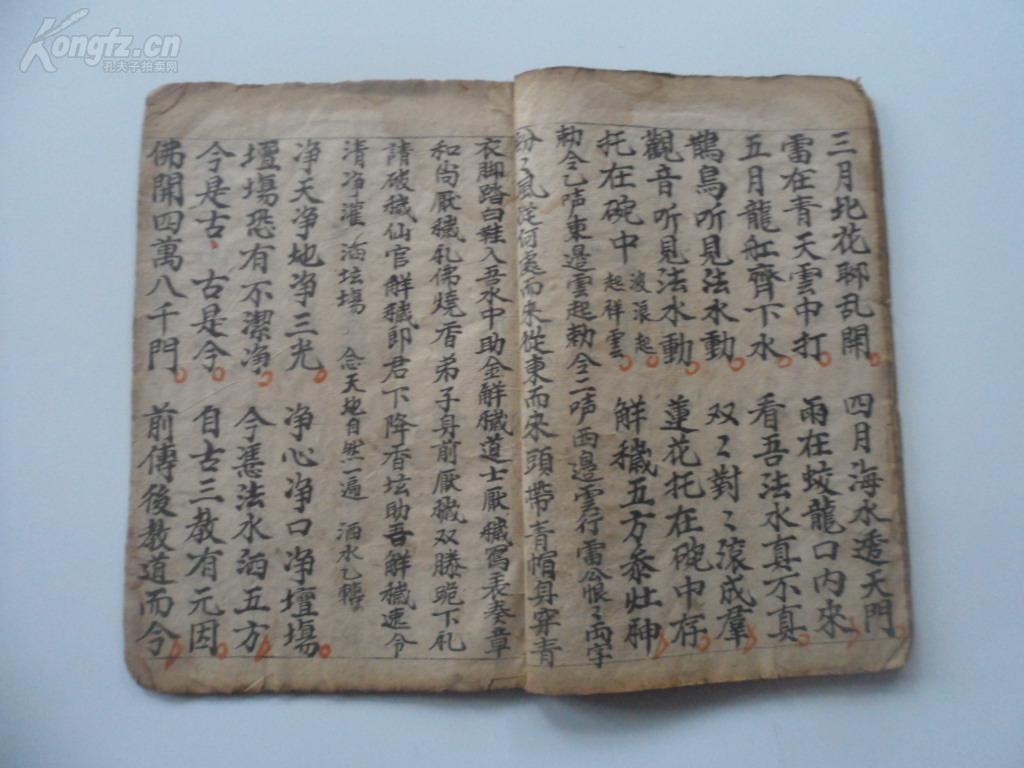 三月北花聊乱開 四月海水透天門
雷在青天雲中打 雨在蛟龍口内來
五月龍舡齊下水 看吾法水真不真
鵲鳥听見法水動 双〻對〻滚成羣
觀音听見法水動 蓮花托在碗中存
托在碗中 波浪起 起祥雲 解穢五方泰灶神
勅令乙声東邊雲起勅令二声西邊雲行雷公恨〻雨字
紛〻風從何處而來從東而來頭帶青帽身穿青
衣脚踏白鞋入吾水中助金解穢道士厭穢寫表奏章
和尚厭穢礼佛燒香弟子身前厭穢双膝跪下礼
請破穢仙官解穢郎君下降香坛助吾解穢速令
清净灌洒坛塲 念天地自然一遍 洒水乙
净天净地净三光 净心净口净壇塲
壇塲恐有不潔净 今憑法水洒五方
今是古 古是今 自古三教有元因
佛開四萬八千門 前傳後教道而今
Kongfz.cn
孔夫子拍卖网